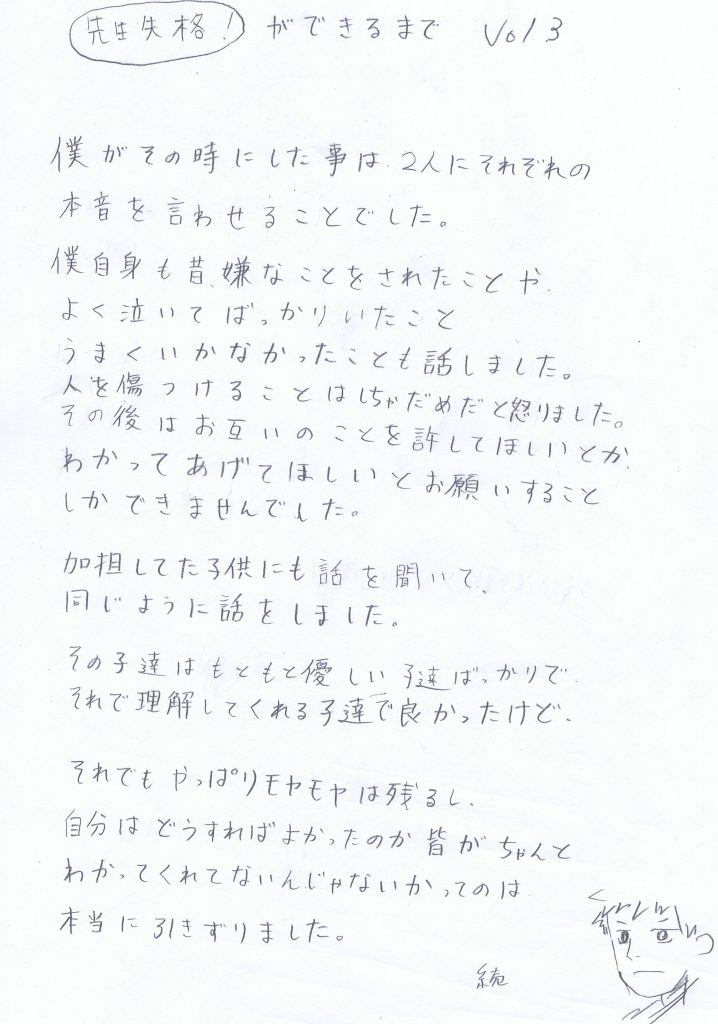 先生失格! ができるまで Vol 3
僕がその時にした事は、2人にそれぞれの
本音を言わせることでした。
僕自身も昔、嫌なことをされたことや、
よく泣いてばっかりいたこと
うまくいかなかったことも話しました。
人を傷つけることはしちゃだめだと怒りました。
その後はお互いのことを許してほしいとか、
わかってあげてほしいとお願いすること
しかできませんでした。
加担してた子供にも話を聞いて、
同じように話をしました。
その子達はもともと優しい子達ばっかりで、
それで理解してくれる子達で良かったけど、
それでもやっぱりモヤモヤは残るし、
自分はどうすればよかったのか皆がちゃんと
わかってくれてないんじゃないかってのは、
本当に引きずりました。
続